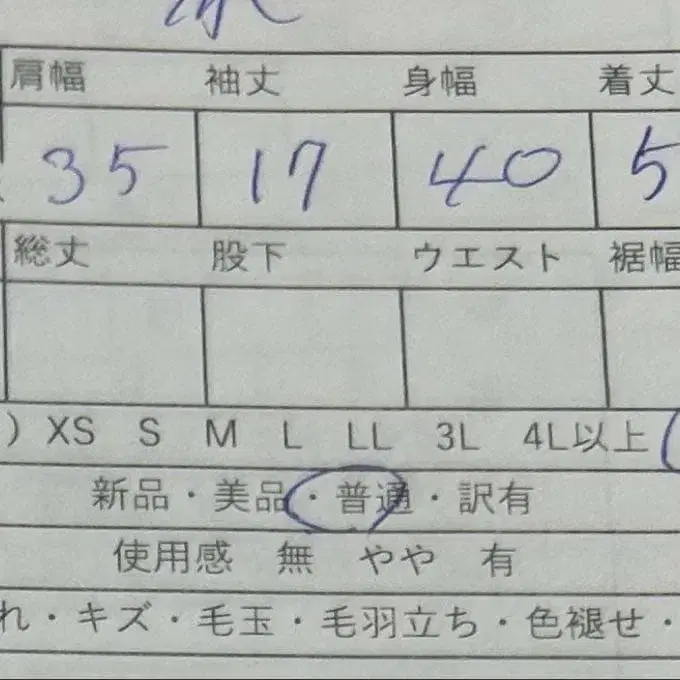 肩幅 袖丈 身幅 着丈
35 17 40 5
総丈 股下 ウエスト 裾幅
) XS S M L LL 3L 4L以上 (
新品・美品・普通・訳有
使用感 無 やや 有
れ・キズ・毛玉・毛羽立ち・色褪せ・